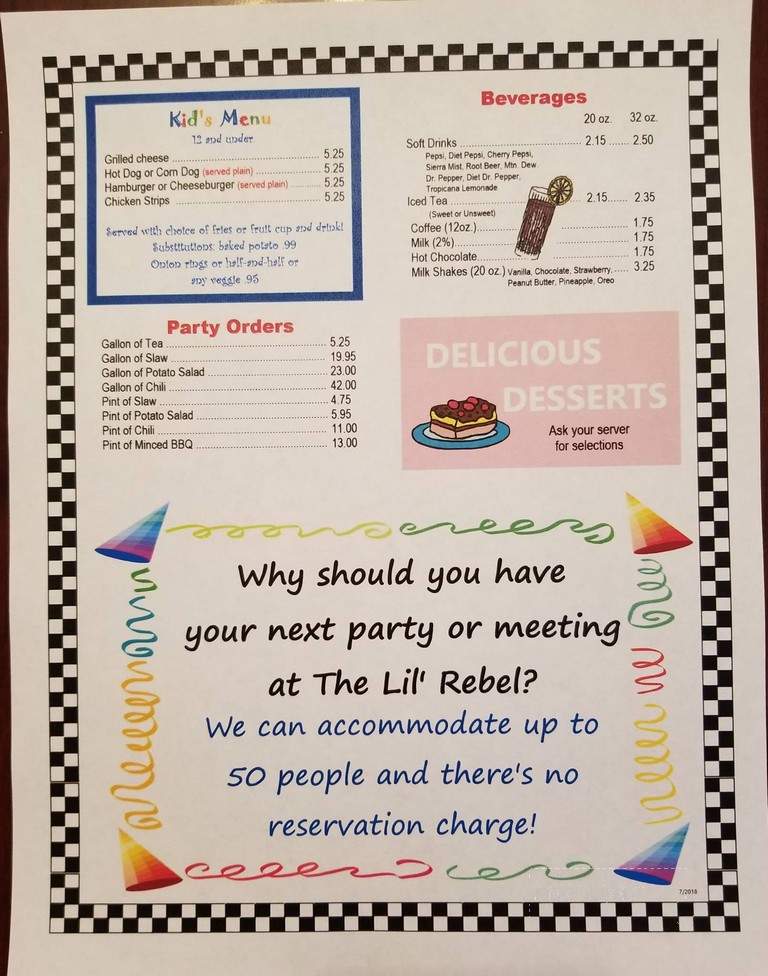 Kid's Menu
12 and under
Grilled cheese ........ 5.25
Hot Dog or Corn Dog (served plain) ........ 5.25
Hamburger or Cheeseburger (served plain) ........ 5.25
Chicken Strips ........ 5.25
Served with choice of fries or fruit cup and drink!
Substitutions: baked potato .99
Onion rings or half-and-half or
any veggie .95
Party Orders
Gallon of Tea ........ 5.25
Gallon of Slaw ........ 19.95
Gallon of Potato Salad ........ 23.00
Gallon of Chili ........ 42.00
Pint of Slaw ........ 4.75
Pint of Potato Salad ........ 5.95
Pint of Chili ........ 11.00
Pint of Minced BBQ ........ 13.00
Beverages
20 oz. 32 oz.
Soft Drinks ........ 2.15 ...... 2.50
Pepsi, Diet Pepsi, Cherry Pepsi,
Sierra Mist, Root Beer, Mtn. Dew
Dr. Pepper, Diet Dr. Pepper,
Tropicana Lemonade
Iced Tea ........ 2.15 ...... 2.35
(Sweet or Unsweet)
Coffee (12oz.) ........ 1.75
Milk (2%) ........ 1.75
Hot Chocolate ........ 1.75
Milk Shakes (20 oz.) Vanilla, Chocolate, Strawberry, ..... 3.25
Peanut Butter, Pineapple, Oreo
DELICIOUS
DESSERTS
Ask your server
for selections
Why should you have
your next party or meeting
at The Lil' Rebel?
We can accommodate up to
50 people and there's no
reservation charge!
7/2018